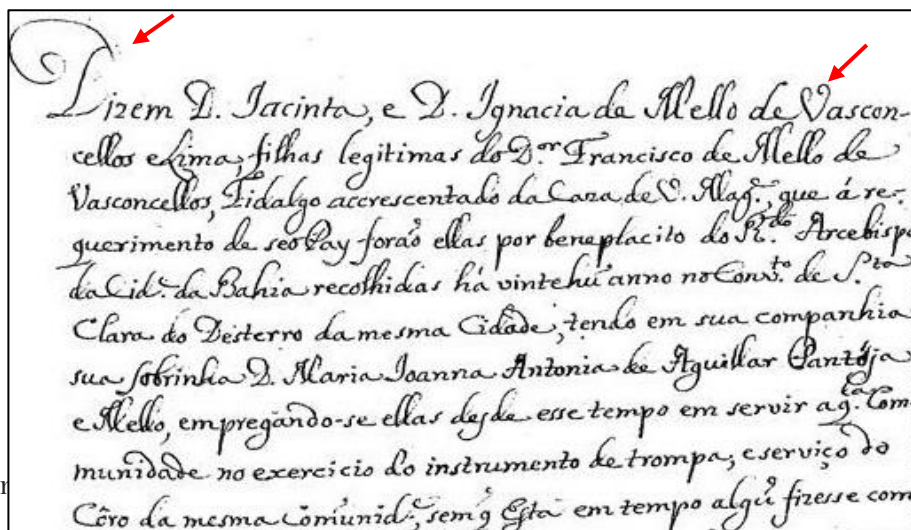 Dizem D. Jacinta, e D. Ignacia de Mello de Vascon-
cellos e Lima, filhas legitimas do D.or Francisco de Mello de
Vasconcellos, Fidalgo accrescentado da Caza de V. Mag.e, que á re-
querimento de seo Pay foraõ ellas por beneplacito do R.do Arcebispo
da Cid.e da Bahia recolhidas há vinte hũ anno no Conv.to de S.ta
Clara do Desterro da mesma Cidade, tendo em sua companhia
sua sobrinha D. Maria Joanna Antonia de Aguillar Pantója
e Mello, empregando-se ellas desde esse tempo em servir aq.la Com-
munidade no exercicio do instrumento de trompa, e serviço do
r
Côro da mesma Comunid.e, sem q̃ Esta em tempo algũ fizesse com